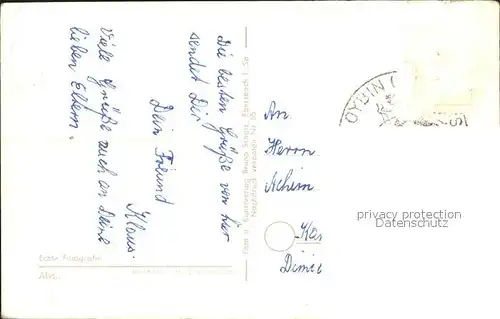 Die besten Grüße von hier
sendet Dir
Dein Freund
Klaus.
Viele Grüße auch an Deine
lieben Eltern.
An
Herrn
Achim
OYBIN (
privacy protection
Datenschutz
Echte Fotografie
Abs.:
Foto u. Kunstverlag Bruno Scholz, Ebersbach i. Sa.
Nachdruck verboten Nr.